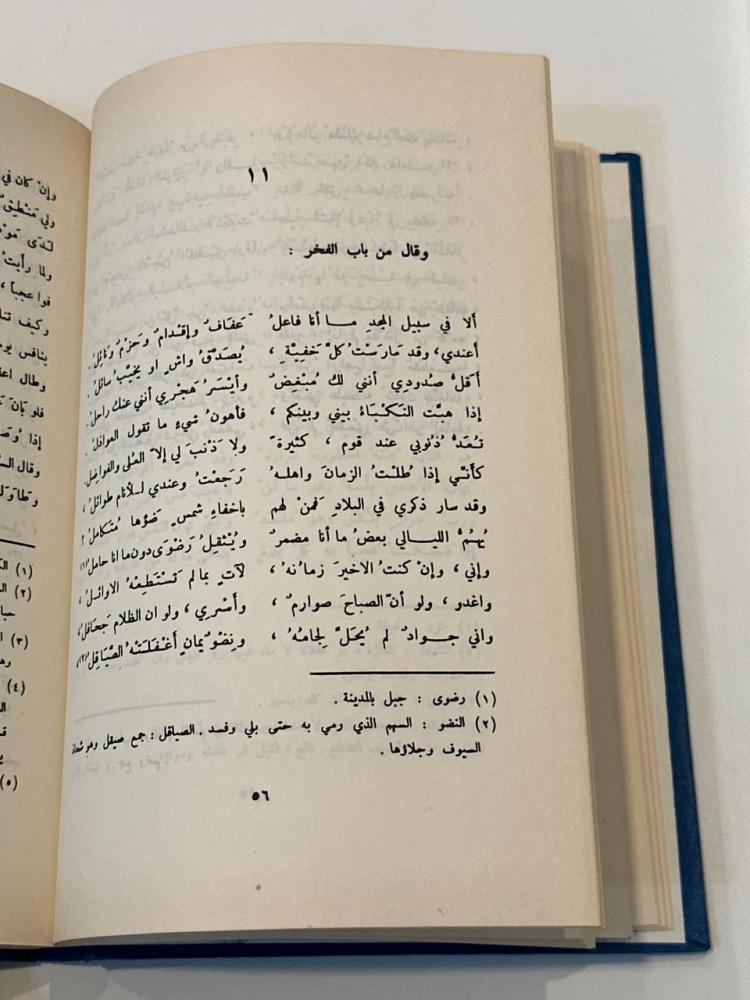 ١١
وقال من باب الفخر :
ألا في سبيل المجدِ مـا أنا فاعلُ عَفافٌ وإقْدامٌ وحَزمٌ ونائِلُ.
أعندي، وقد مارَسْتُ كلَّ خَفِيّةٍ ، يُصَدَّقُ واشٍ او يخَيّبُ سائلُ.
أقلُّ صُدودي أنني لك مُبْغِضٌ وأيْسَرُ هَجْري أنني عنك راحلُ
إذا هبّتِ النَّكْبَاءُ بيني وبينكم ، فأهونُ شيءٍ ما تقول العواذلُ
تُعَدُّ ذُنوبي عند قوم ، كثيرةً ولا ذَنْبَ لي إلاّ العُلى والفواضل.
كأنّي إذا طُلْتُ الزمانَ واهلهُ رَجَعْتُ وعندي لـلأنام طوائلُ ،
وقد سار ذكري في البلادِ فمنْ لهم باخفاءِ شمسٍ ضَوْؤها مُتَكاملُ !
يُهِمُّ الليـالي بعضُ ما أنا مضمرٌ ويُثْقِلُ رَضْوَى دون ما انا حاملُ(١)
وإني ، وإنْ كنتُ الاخيرَ زمانُهُ ، لآتٍ بما لم تَسْتَطِعْهُ الاوائلُ ،
واغدو ، ولو أنّ الصباحَ صوارمٌ ، وأسْري ، ولو ان الظلام جَحافلُ،
واني جـوادٌ لم يُحَلَّ لِجامُهُ ، ونِضْوٌ يمانٍ أغْفَلَتْهُ الصّيَاقِلُ(٢)،
(١) رضوى : جبل بالمدينة .
(٢) النضو : السهم الذي رمي به حتى بلي وفسد . الصياقل : جمع صيقل وهو شحاذ
السيوف وجلاؤها .
٥٦
وإنْ كان في
ولي مَنْطِقٌ
لدَى مَوْ
ولما رأيتُ
فوا عجبا ،
وكيف تنا
ينافس يو
وطال اعـ
فلو بَانَ
إذا وَصَـ
وقال السـ
وطاوَلـ
(١)
(٢)
(٣)
(٤)
(٥)